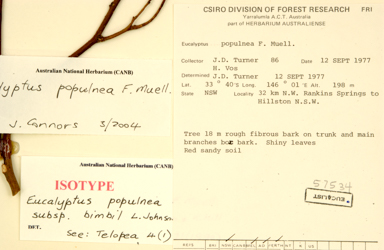 Australian National Herbarium (CANB)
populnea F. Muell.
J. Connors 3/2004
Australian National Herbarium (CANB)
ISOTYPE
Eucalyptus populnea
subsp. bimbil L. Johnson
DET. See: Telopea 4(1)
CSIRO DIVISION OF FOREST RESEARCH FRI
Yarralumla A.C.T. Australia
part of HERBARIUM AUSTRALIENSE
Eucalyptus populnea F. Muell.
Collector J.D. Turner 86 Date 12 SEPT 1977
H. Vos
Determined J.D. Turner 12 SEPT 1977
Lat. 33 ° 40's Long. 146 ° 01'E Alt. 198 m
State NSW Locality 32 km N.W. Rankins Springs to
Hillston N.S.W.
Tree 18 m rough fibrous bark on trunk and main
branches box bark. Shiny leaves
Red sandy soil
57534
EUCALIST